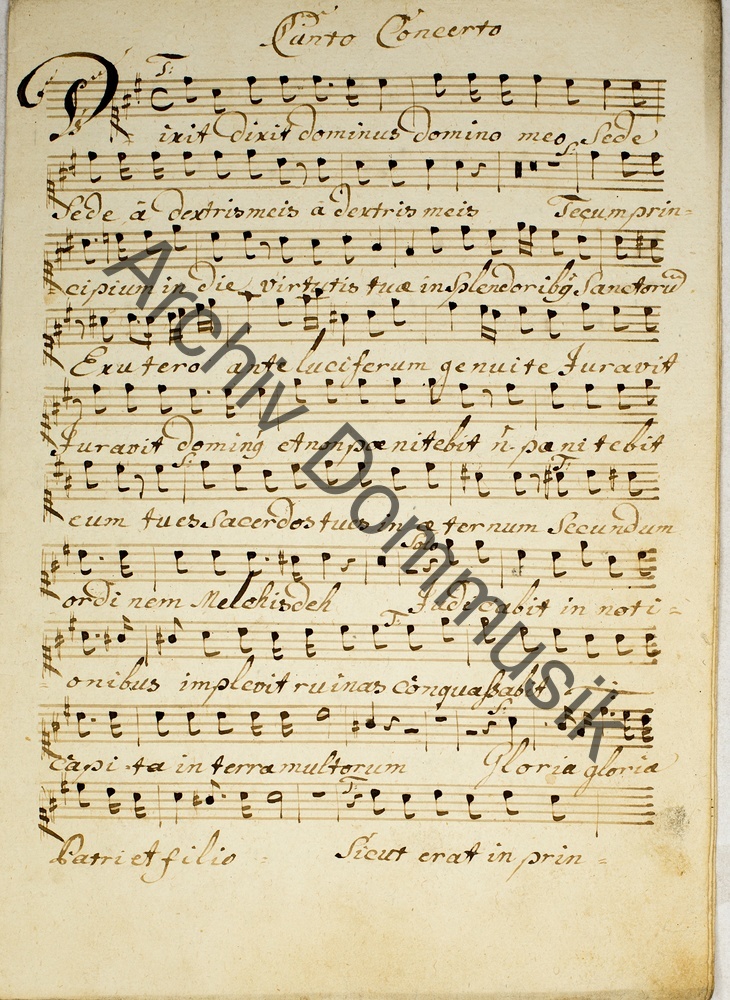 Canto Concerto
T:
Dixit dixit dominus domino meo Sede
S:
Sede à dextris meis a dextris meis Tecum prin=
cipium in die virtutis tuæ in Splendoribꝰ Sanctorũ
Ex utero ante luciferum genui te Juravit
Juravit dominꝰ et non pœnitebit ñ pænitebit
S: T:
cum tu es Sacerdos tu es in æternum Secundum
Solo
ordinem Melchisdeh Judicabit in noti=
T:
onibus implevit ruinas conquaßabit
S:
Capita in terra multorum Gloria gloria
T:
Patri et filio Sicut erat in prin=
Archiv Dommusik